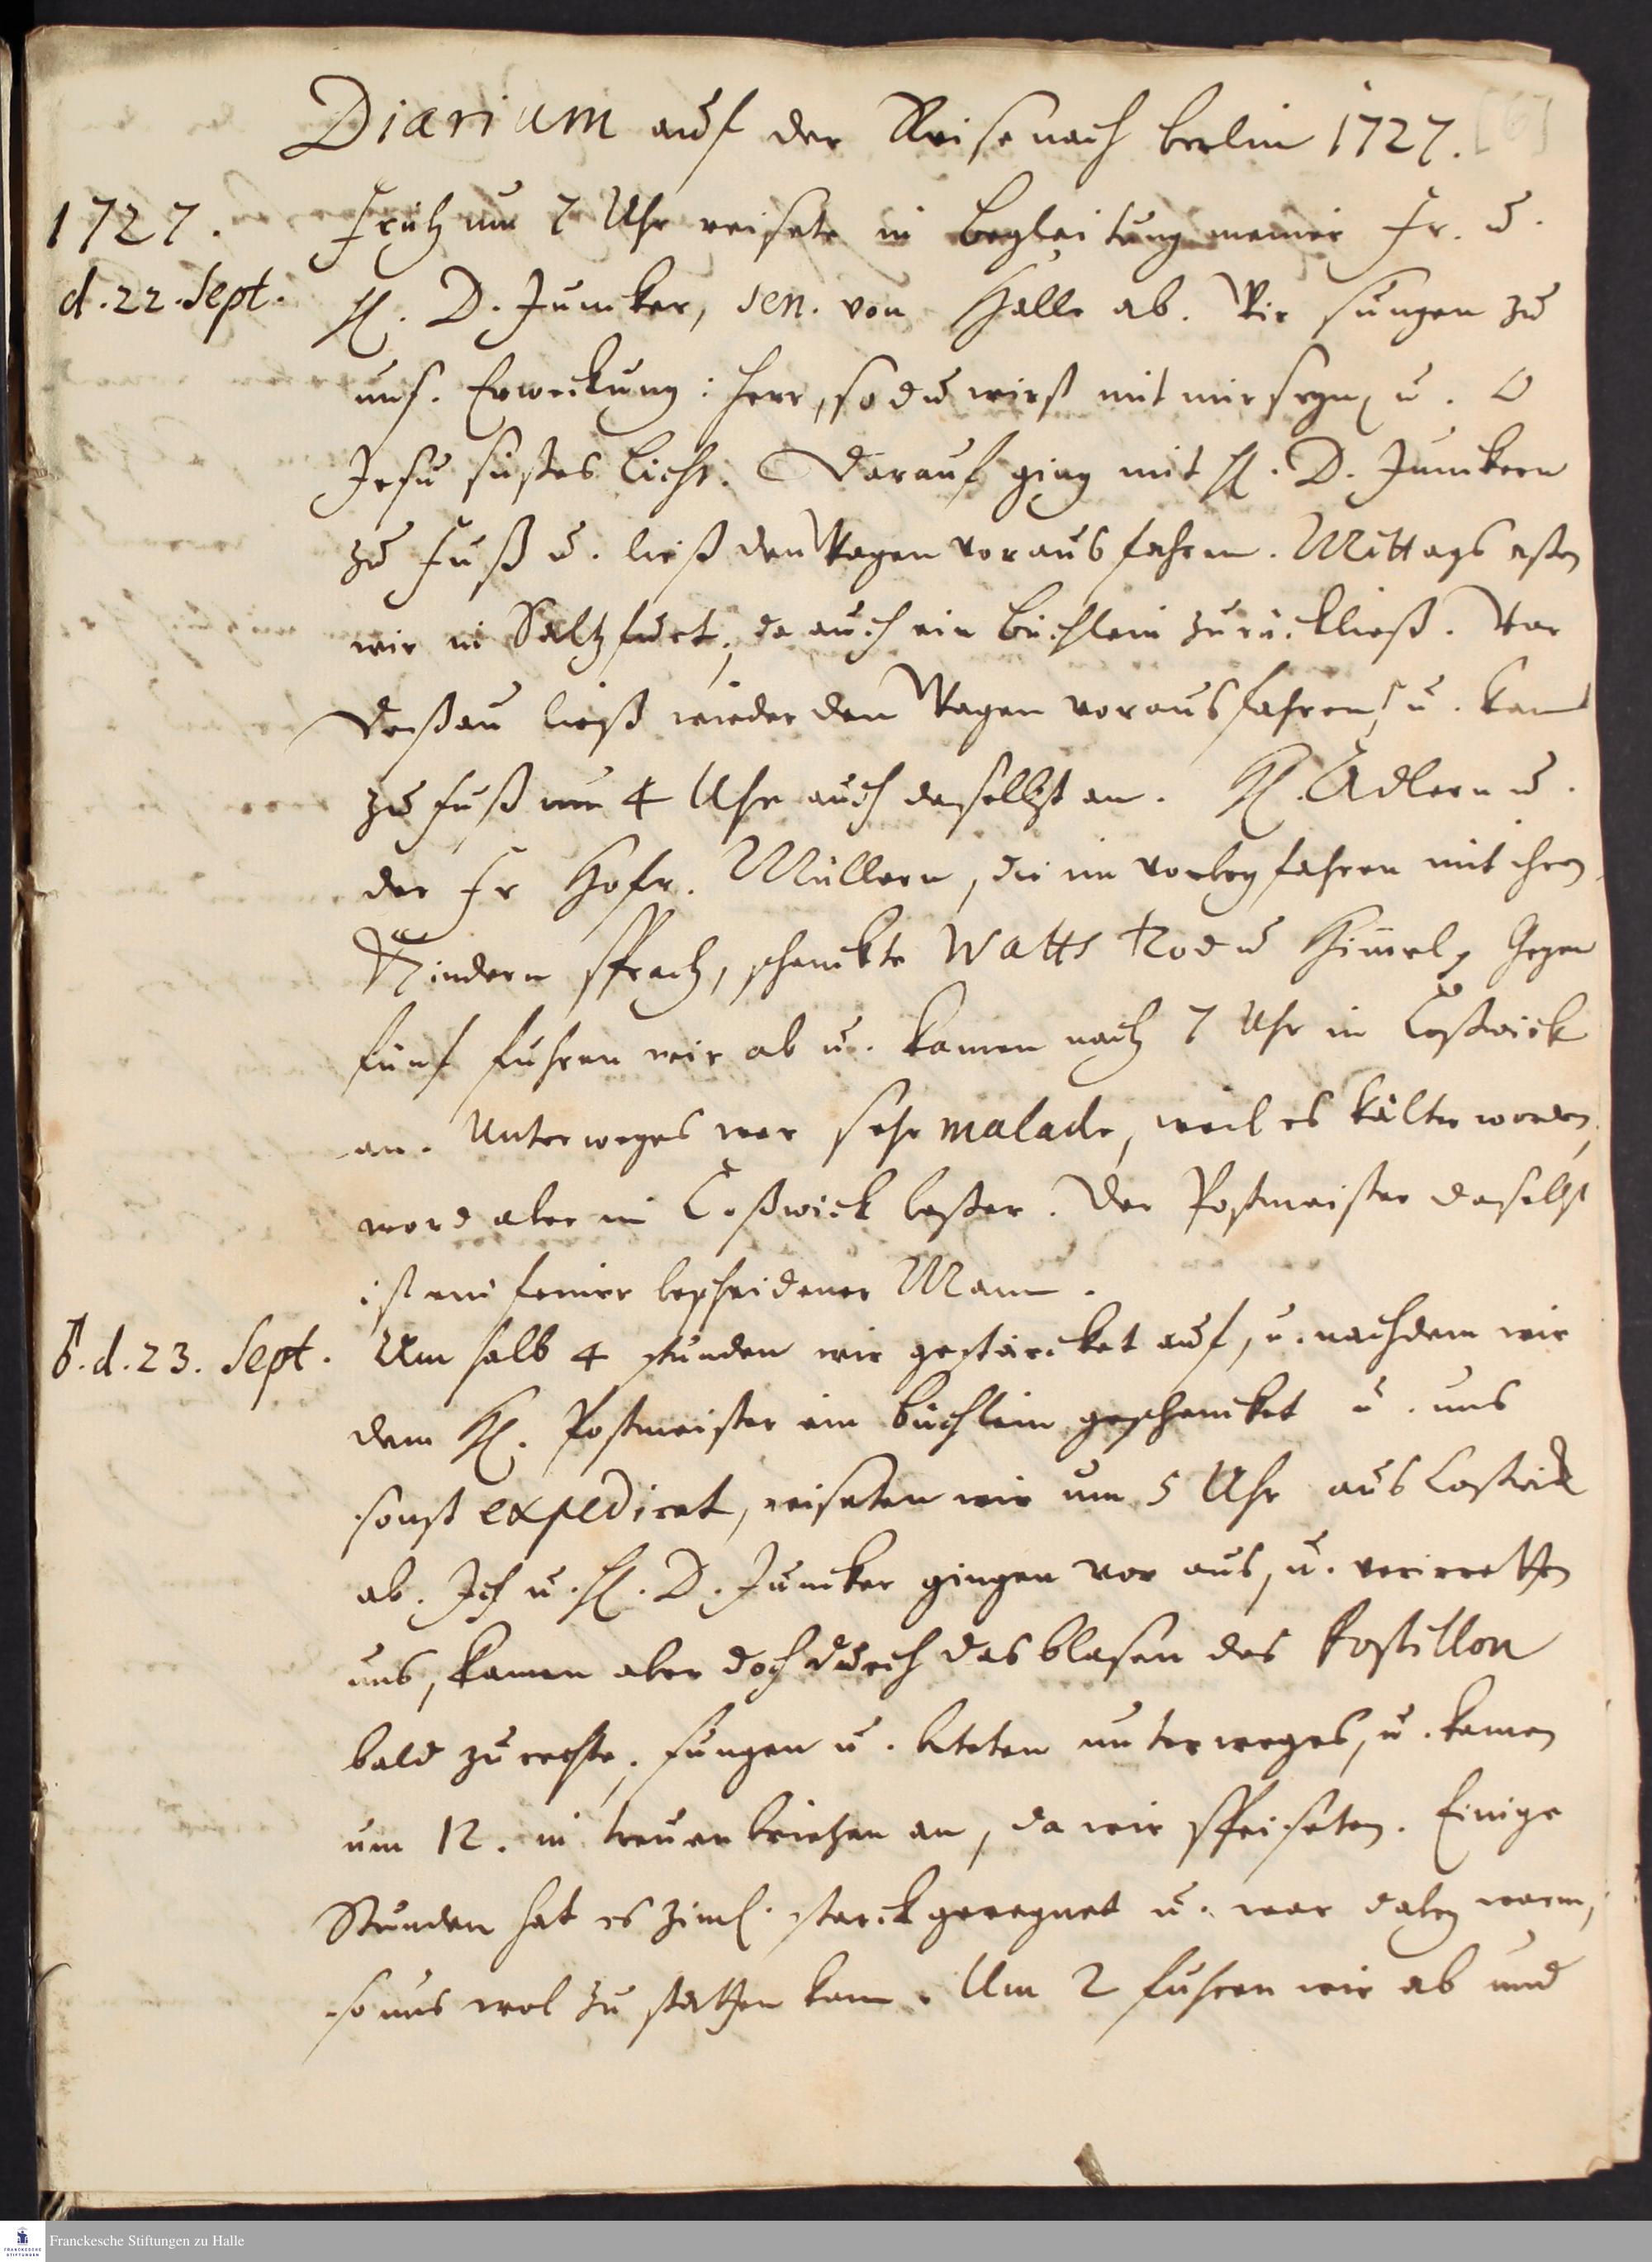 Diarium auf der Reise nach Berlin 1727. [6]
1727. Früh um 7 Uhr reisete in Begleitung meiner Fr. u.
d. 22. Sept. H. D. Juncker, sen. von Halle ab. Wir sungen zu
uns. Erweckung: Herr, so du wirst mit mir seyn, u. O
Jesu süßes Licht. Darauf ging mit H. D. Junckern
zu Fuß u. ließ den Wagen voraus fahren. Mittags aßen
wir in Saltzfurt, da auch ein Büchlein zurückließ. Vor
Deßau ließ wieder den Wagen voraus fahren, u. kam
zu Fuß um 4 Uhr auch daselbst an. H. Adlern u.
der Fr Hofr. Müllern, die im vorbey fahren mit ihren
Kindern sprach, schenckte Watts Tod u Himel, Gegen
fünf fuhren wir ab u. kamen nach 7 Uhr in Coßwick
an. Unterweges war sehr malade, weil es kälter worden,
ward aber in Coßwick beßer. Der Postmeister daselbst
ist ein feiner bescheidener Mann.
♂. d. 23. Sept. Um halb 4 stunden wir gestärcket auf, u. nachdem wir
dem H. Postmeister ein Büchlein geschencket u. uns
sonst expediret, reiseten wir um 5 Uhr aus Coßwick
ab. Ich u. H. D. Juncker gingen vor aus, u. verirretten
uns, kamen aber doch durch das blasen des Postillon
bald zu rechte, sungen u. beteten unterweges, u. kamen
um 12. in Treuenbriezen an, da wir speiseten. Einige
Stunden hat es ziml. starck geregnet u. war dabey warm,
so uns wol zu statten kam. Um 2 fuhren wir ab und
Franckesche Stiftungen zu Halle
FRANCKESCHE
STIFTUNGEN